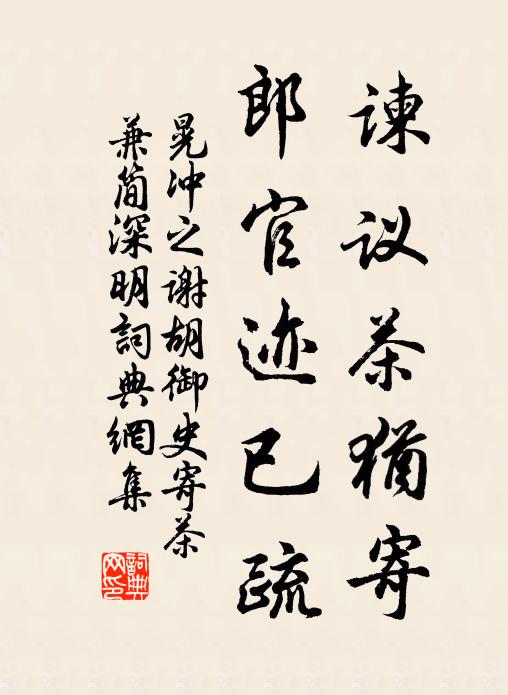 谏议茶猶寄
郎官迹已疏
晃冲之谢胡御史寄茶
兼简深明詞典網集
詞典
网印